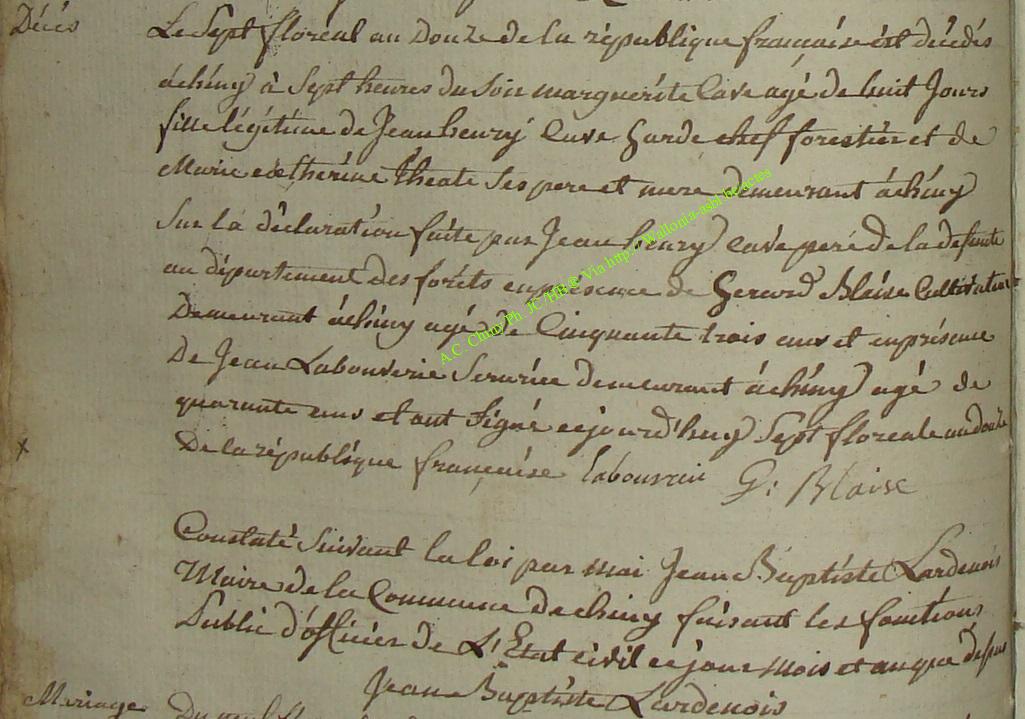 Décés
Le Sept floréal an Douze de la république francaise est décédés
áchiny à Sept heures du Soir marguerite Cave agé de huit Jours
fille légitime de Jean henry Cave Garde chef forestier et de
Marie catherine theate Ses pere et mere demeurant áchiny
Sur la déclaration faite par Jean henry Cave pere de la defunte
au département des foréts en présence de Gerard Blaise Cultivateur
Demeurant áchiny agé de Cinquante trois ans et en présence
De Jean Labouverie Serurier demeurant áchiny agé de
quarante ans et ont Signé cejourd'huy Sept floreale an douze
De la république francaise labouverie G: Blaise
Constaté Suivant la loi par moi Jean Baptiste Lardenois
Maire de la Commune De chiny faisant les fonctions
Public d'officier de L'Etat civil ce jour mois et an que dessus
Jean Baptiste Lardenois
Mariage
A.C. Chiny Ph. JC/HB @ Via http://Wallonia-asbl.be/actes